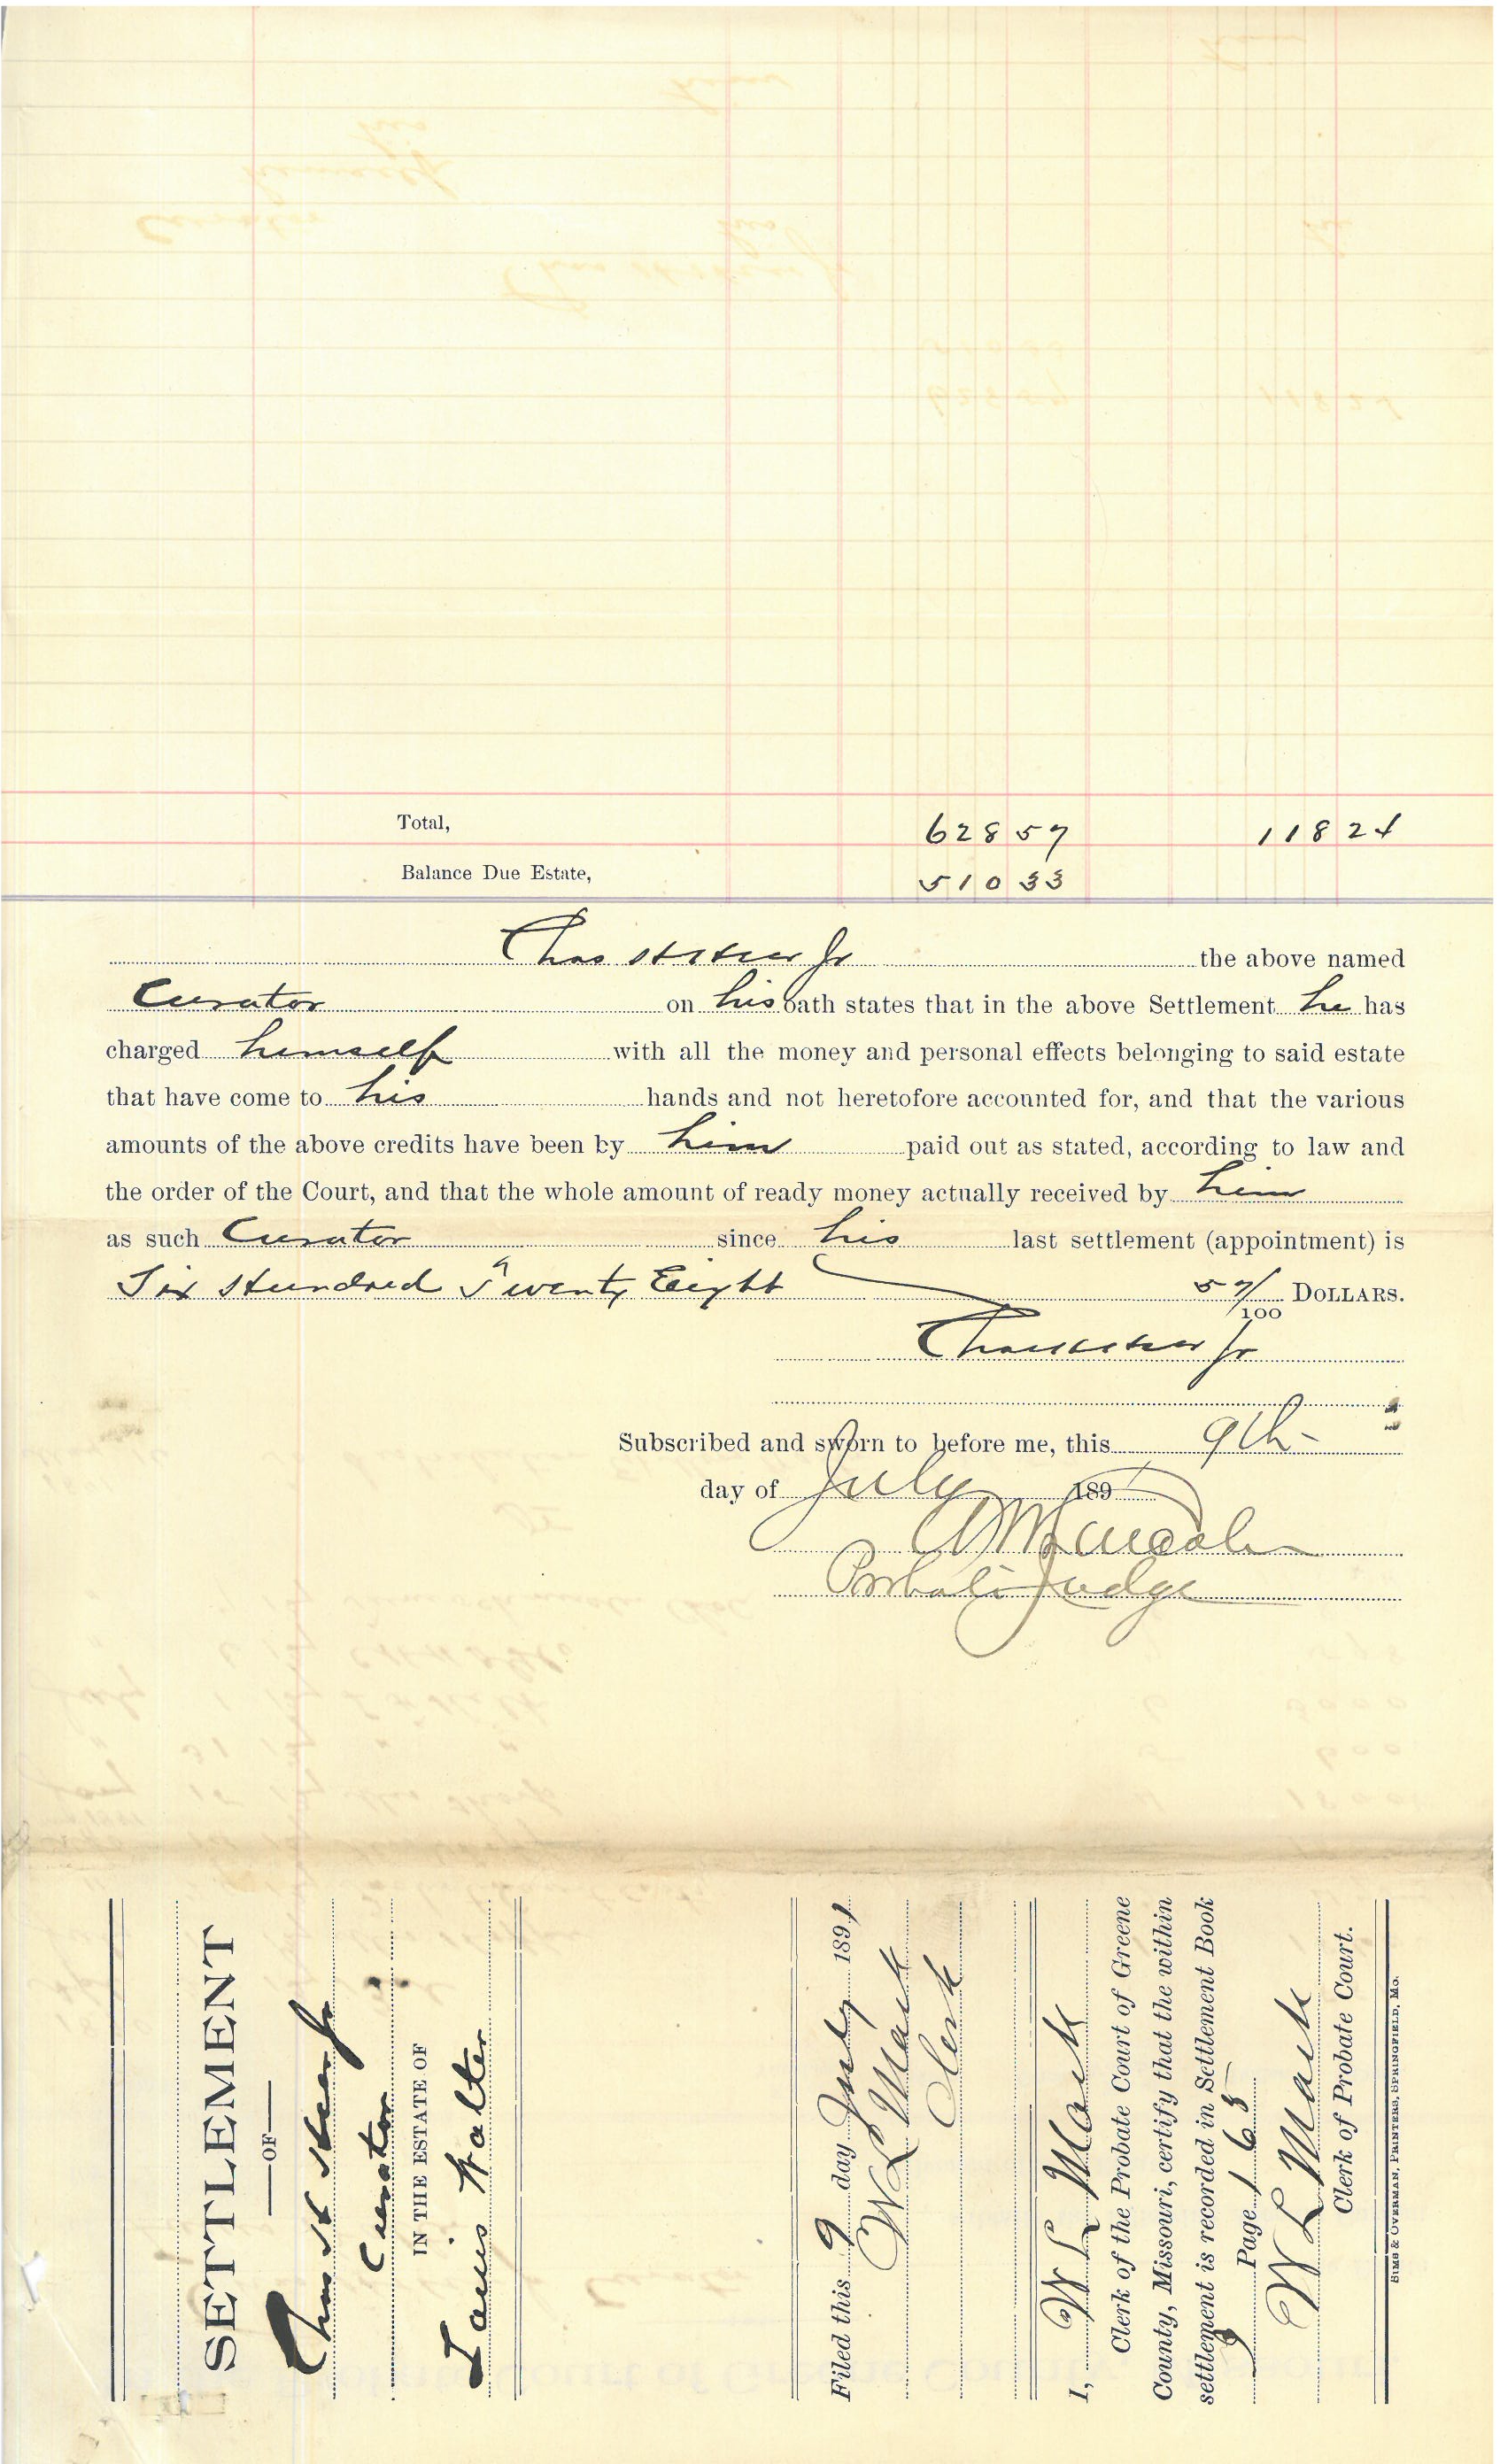 Total, 628 57 118 24
Balance Due Estate, 510 33
Chas Jr the above named
Curator on his oath states that in the above Settlement he has
charged himself with all the money and personal effects belonging to said estate
that have come to his hands and not heretofore accounted for, and that the various
amounts of the above credits have been by him paid out as stated, according to law and
the order of the Court, and that the whole amount of ready money actually received by him
as such Curator since his last settlement (appointment) is
Six Hundred & Twenty Eight 57/100 DOLLARS.
Jr
Subscribed and sworn to before me, this 9th
day of July 189
Probate Judge
SETTLEMENT
—OF—
Chas Jr
Curator
IN THE ESTATE OF
Louis Walter
Filed this 9 day July 1891
W L Mack
Clerk
I, W L Mack
Clerk of the Probate Court of Greene
County, Missouri, certify that the within
settlement is recorded in Settlement Book
Page 165
W L Mack
Clerk of Probate Court.
SIMS & OVERMAN, PRINTERS, SPRINGFIELD, MO.